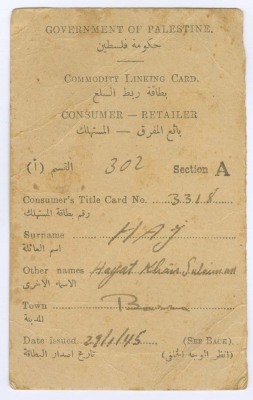 GOVERNMENT OF PALESTINE.
حكومة فلسطين
COMMODITY LINKING CARD.
بطاقة ربط السلع
CONSUMER — RETAILER
بائع المفرق — المستهلك
القسم (أ) 302 Section A
Consumer's Title Card No. 3318
رقم بطاقة المستهلك
Surname HAJ
اسم العائلة
Other names Hayat Khair Suleiman
الاسماء الاخرى
Town
المدينة
Date issued 29/1/45 (SEE BACK).
تاريخ اصدار البطاقة (انظر الوجه الخلفي)